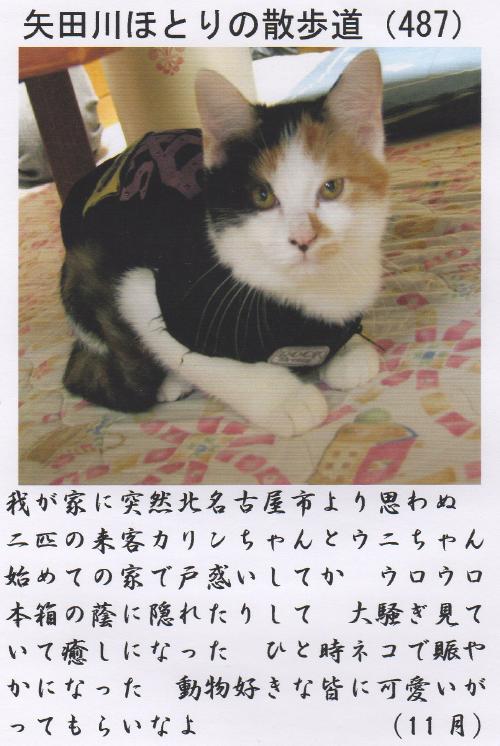 矢田川ほとりの散歩道（487）
我が家に突然北名古屋市より思わぬ
二匹の来客カリンちゃんとウニちゃん
始めての家で戸惑いしてか　ウロウロ
本箱の蔭に隠れたりして　大騒ぎ見て
いて癒しになった　ひと時ネコで賑や
かになった　動物好きな皆に可愛いが
ってもらいなよ　（11月）